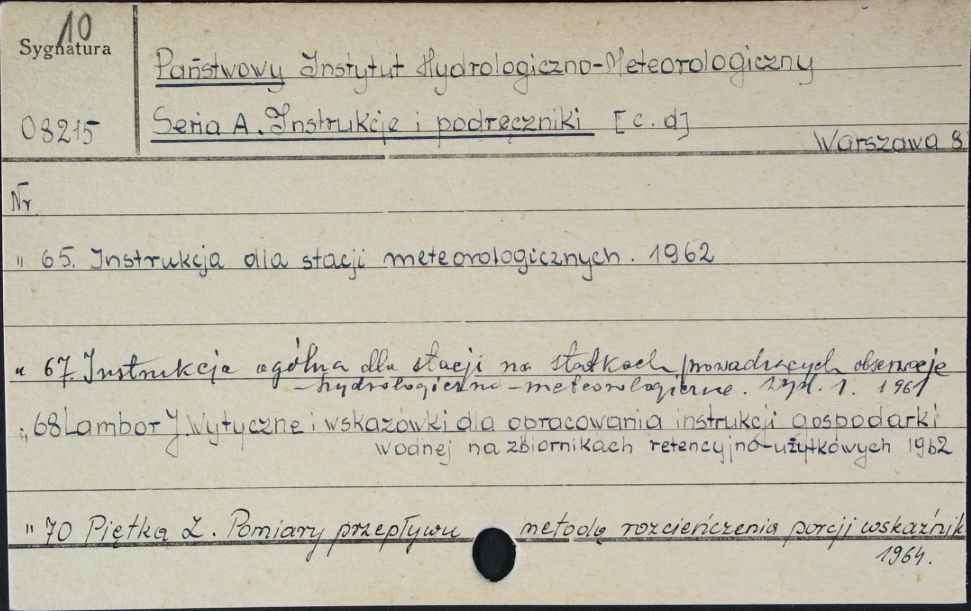 10
Sygnatura
08215
Państwowy Instytut Hydrologiczno-Meteorologiczny
Seria A. Instrukcje i podręczniki [c.d]
Warszawa 8
Nr
" 65. Instrukcja dla stacji meteorologicznych. 1962
" 67. Instrukcja ogólna dla stacji na statkach prowadzących obserwacje
-hydrologiczno-meteorologiczne. 1. 1961
" 68 Lambor J. Wytyczne i wskazówki dla opracowania instrukcji gospodarki
wodnej na zbiornikach retencyjno-użytkowych 1962
" 70 Piętka Z. Pomiary przepływu metodą rozcieńczenia porcji wskaźnik
1964.